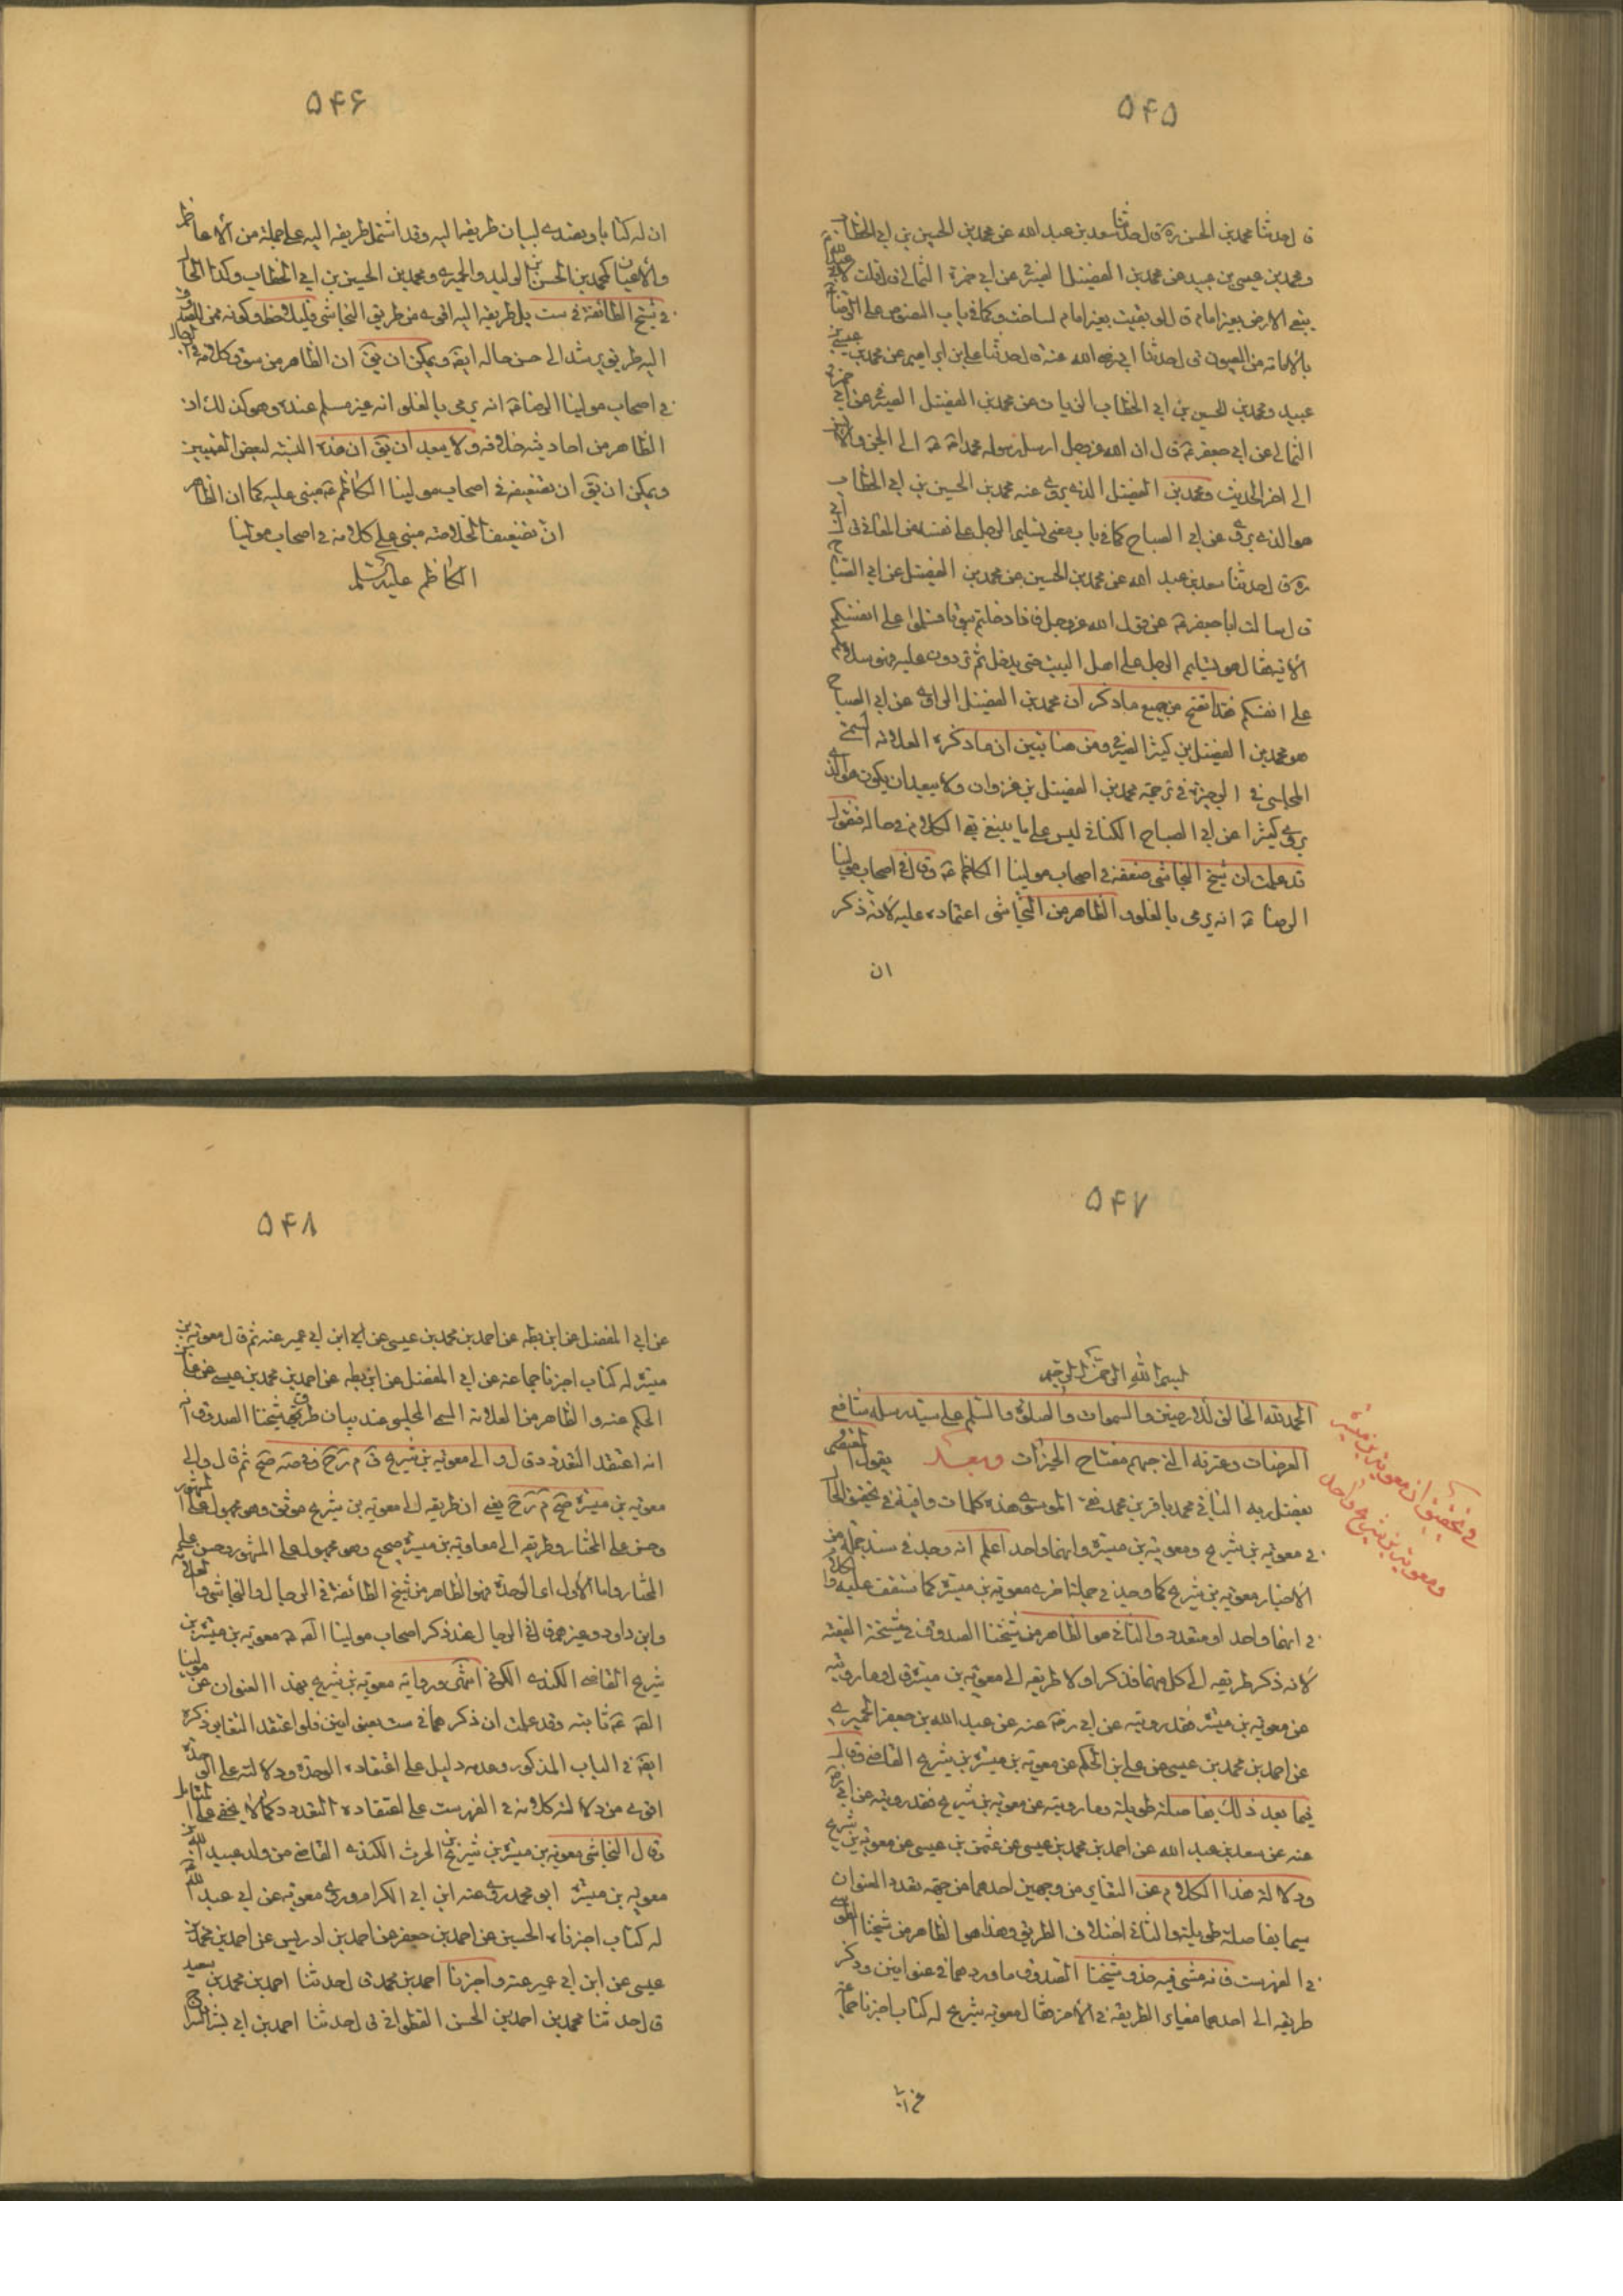 ۵۴۵
قال حدثنا محمد بن الحسن ره قال حدثنا سعد بن عبد الله عن محمد بن الحسين بن ابي الخطاب
ومحمد بن عيسى بن عبيد عن محمد بن الفضيل الصيرفي عن ابي حمزة الثمالي قال قلت لابي عبد الله ع
يبقى الارض بغير امام قال لو بقيت بغير امام لساخت وكما في باب النصوص على الرضا ع
بالامامة من العيون قال حدثنا ابي رضي الله عنه قال حدثنا علي بن ابراهيم عن محمد بن عيسى بن
عبيد ومحمد بن الحسين بن ابي الخطاب الزيات عن محمد بن الفضيل الصيرفي عن ابي حمزة
الثمالي عن ابي جعفر ع قال ان الله عز وجل ارسل رسوله محمدا الى الجن والانس
الى اخر الحديث ومحمد بن الفضيل الذي يروي عنه محمد بن الحسين بن ابي الخطاب
هو الذي يروي عن ابي الصباح كما في باب معنى تسليم الرجل على نفسه من المعاني قال ابي
ره قال حدثنا سعد بن عبد الله عن محمد بن الحسين عن محمد بن الفضيل عن ابي الصباح
قال سالت ابا جعفر ع عن قول الله عز وجل فاذا دخلتم بيوتا فسلموا على انفسكم
الاية فقال هو تسليم الرجل على اهل البيت حين يدخل ثم يردون عليه فهو سلامكم
على انفسكم فقد اتضح من جميع ما ذكر ان محمد بن الفضيل الراوي عن ابي الصباح
هو محمد بن الفضيل بن كثير الصيرفي ومن هنا تبين ان ما ذكره العلامة السمي
المجلسي في الوجيزة في ترجمة محمد بن الفضيل بن غزوان ولا يبعد ان يكون هو الذي
يروي كثيرا عن ابي الصباح الكناني ليس على ما ينبغي بقي الكلام في حاله فنقول
قد علمت ان شيخ النجاشي ضعفه في اصحاب مولينا الكاظم ع وقال في اصحاب مولينا
الرضا ع انه يرمى بالغلو والظاهر من النجاشي اعتماده عليه لانه ذكر
ان
۵۴۶
ان له كتابا وبصدده لبيان طريقه اليه وقد اشتمل طريقه اليه على جملة من الاعاظم
والاعيان كمحمد بن الحسن بن الوليد والحميري ومحمد بن الحسين بن ابي الخطاب وكذا الحال
في شيخ الطائفة في ست بل طريقه اليه اقوى من طريق النجاشي فليلاحظ وكونه ممن للصدوق
اليه طريق يرشد الى حسن حاله ايضا ويمكن ان يق ان الظاهر من سوق كلامه في الرجال
في اصحاب مولينا الرضا ع انه يرمى بالغلو انه غير مسلم عنده وهو كذلك اذ
الظاهر من احاديثه خلافه ولا يبعد ان يق ان هذه النسبة لبعض القميين
ويمكن ان يق ان تضعيفه في اصحاب مولينا الكاظم ع مبني عليه كما ان الظاهر
ان تضعيف الخلاصة مبني على كلامه في اصحاب مولينا
الكاظم عليه السلم
۵۴۷
بسم الله الرحمن الرحيم
الحمد لله الخالق للارضين والسموات والصلوة والسلم على سيد رسله شافع
العرصات وعترته الذين حبهم مفتاح الخيرات وبعد يقول المعتصم
بفضل ربه الثاني محمد باقر بن محمد نقي الموسوي هذه كلمات وافية في تحقيق الحال
في معوية بن شريح ومعوية بن ميسرة وانهما واحد اعلم انه وجد في سند جملة من
الاخبار معوية بن شريح كما وجد في جملة اخرى معوية بن ميسرة كما ستقف عليه والكلام
في انهما واحد او متعدد والثاني هو الظاهر من شيخنا الصدوق في مشيخة الفقيه
لانه ذكر طريقه الى كل منهما فذكر اولا طريقه الى معوية بن ميسرة قال وما رويته
عن معوية بن ميسرة فقد رويته عن ابي رضي الله عنه عن عبد الله بن جعفر الحميري
عن احمد بن محمد بن عيسى عن علي بن الحكم عن معوية بن ميسرة بن شريح القاضي وقال
فيما بعد ذلك بفاصلة طويلة وما رويته عن معوية بن شريح فقد رويته عن ابي رضي الله
عنه عن سعد بن عبد الله عن احمد بن محمد بن عيسى عن عثمن بن عيسى عن معوية بن شريح
ودلالة هذا الكلام عن التغاير من وجهين احدهما من جهة تعدد العنوان
سيما بفاصلة طويلة والثاني اختلاف الطريق وهذا هو الظاهر من شيخنا الطوسي
في الفهرست فانه مشى فيه حذو شيخنا الصدوق فاوردهما في عنوانين وذكر
طريقه الى احدهما مغاير الطريقه في الاخر فقال معوية بن شريح له كتاب اخبرنا جماعة
عن ابي
في تحقيق ان معوية بن ميسرة
ومعوية بن شريح واحد
۵۴۸
عن ابي المفضل عن ابن بطة عن احمد بن محمد بن عيسى عن ابن ابي عمير عنه ثم قال معوية بن
ميسرة له كتاب اخبرنا جماعة عن ابي المفضل عن ابن بطة عن احمد بن محمد بن عيسى عن علي بن
الحكم عنه والظاهر من العلامة السمي المجلسي عند بيان طرق شيخنا الصدوق
انه اعتقد التعدد قال والى معوية بن شريح ق م رح وفي صه صح ثم قال والى
معوية بن ميسرة صح م رح يعني ان طريقه الى معوية بن شريح موثق وهو مجهول على المشهور
وحسن على المختار وطريقه الى معاوية بن ميسرة صحيح وهو مجهول على المشهور وحسن على
المختار واما الاول اي الوحدة فهو الظاهر من شيخ الطائفة في الرجال والنجاشي والعلامة
وابن داود وغيرهم قال في الرجال عند ذكر اصحاب مولينا الصادق ع معوية بن ميسرة بن
شريح القاضي الكندي الكوفي انتهى ورواية معوية بن شريح بهذا العنوان عن مولينا
الصادق ع ثابتة وقد علمت ان ذكرهما في ست بعنوانين فلو اعتقد التغاير ذكره
ايضا في الباب المذكور وعدمه دليل على اعتقاده الوحدة ودلالته على الوحدة
اقوى من دلالة كلامه في الفهرست على اعتقاده التعدد كما لا يخفى على المتامل
وقال النجاشي معوية بن ميسرة بن شريح بن الحرث الكندي القاضي من ولد عبيد الله بن
معوية بن ميسرة ابو محمد روى عنه ابن ابي الكرام وروى معوية عن ابي عبد الله ع
له كتاب اخبرناه الحسين عن احمد بن جعفر عن احمد بن ادريس عن احمد بن محمد بن
عيسى عن ابن ابي عمير عنه واخبرنا احمد بن محمد قال حدثنا احمد بن محمد بن سعيد
قال حدثنا محمد بن احمد بن الحسن القطواني قال حدثنا احمد بن ابي بشر السراج